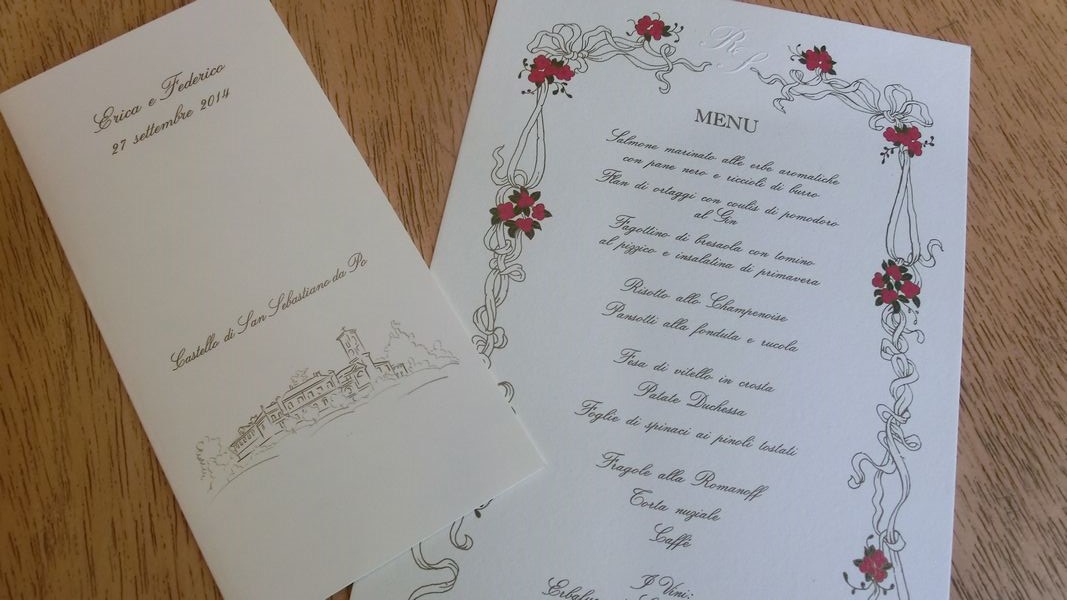 Erica e Federico
27 settembre 2014
Castello di San Sebastiano da Po
R S
MENU
Salmone marinato alle erbe aromatiche
con pane nero e riccioli di burro
Flan di ortaggi con coulis di pomodoro
al Gin
Fagottino di bresaola con tomino
al pizzico e insalatina di primavera
Risotto allo Champenoise
Pansotti alla fonduta e rucola
Fesa di vitello in crosta
Patate Duchessa
Foglie di spinaci ai pinoli tostati
Fragole alla Romanoff
Torta nuziale
Caffè
I Vini: